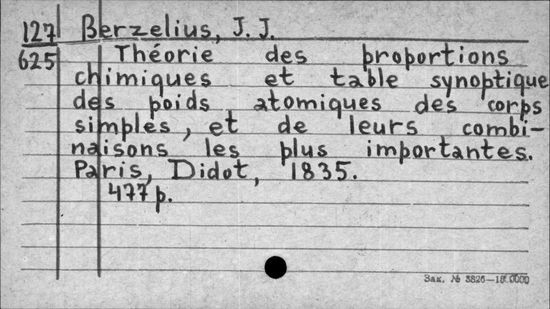 127
625
Berzelius, J. J.
Théorie des proportions
chimiques et table synoptique
des poids atomiques des corps
simples, et de leurs combi-
naisons les plus importantes.
Paris, Didot, 1835.
477 p.
Зак. №